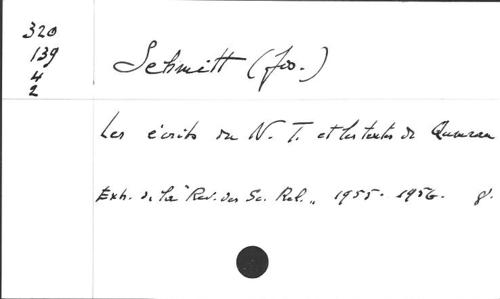 320
139
4
2
Schmitt (Jos.)
Les écrits du N. T. et les textes de Qumran
Extr. de la "Rev. des Sc. Rel." 1955-1956. 8°.